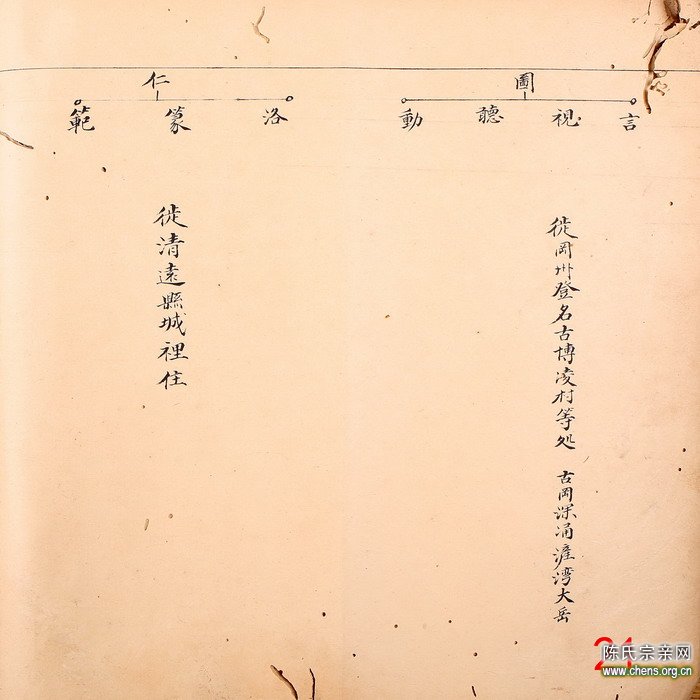 圖
言 視 聽 動
徙岡州登名古博凌村等处 古岡深涌涯湾大岳
仁
洛 篆 範
徙清遠縣城裡住
21
陈氏宗亲网
www.chens.org.cn